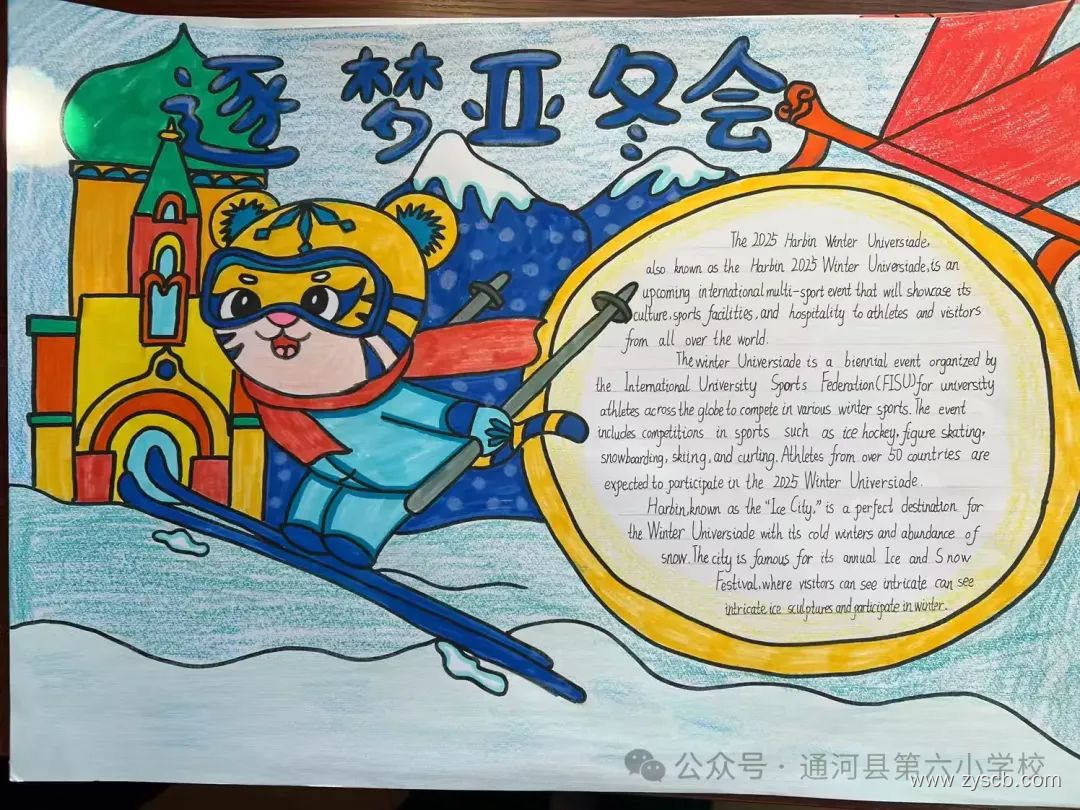 逐梦亚冬会
The 2025 Harbin Winter Universiade,
also known as the Harbin 2025 Winter Universiade, is an
upcoming international multi-sport event that will showcase its
culture, sports facilities, and hospitality to athletes and visitors
from all over the world.
The winter Universiade is a biennial event organized by
the International University Sports Federation (FISU) for university
athletes across the globe to compete in various winter sports. The event
includes competitions in sports such as ice hockey, figure skating,
snowboarding, skiing, and curling. Athletes from over 50 countries are
expected to participate in the 2025 Winter Universiade.
Harbin, known as the "Ice City," is a perfect destination for
the Winter Universiade with its cold winters and abundance of
snow. The city is famous for its annual Ice and Snow
Festival, where visitors can see intricate can see
intricate ice sculptures and participate in winter.
公众号·通河县第六小学校
www.zyscb.com